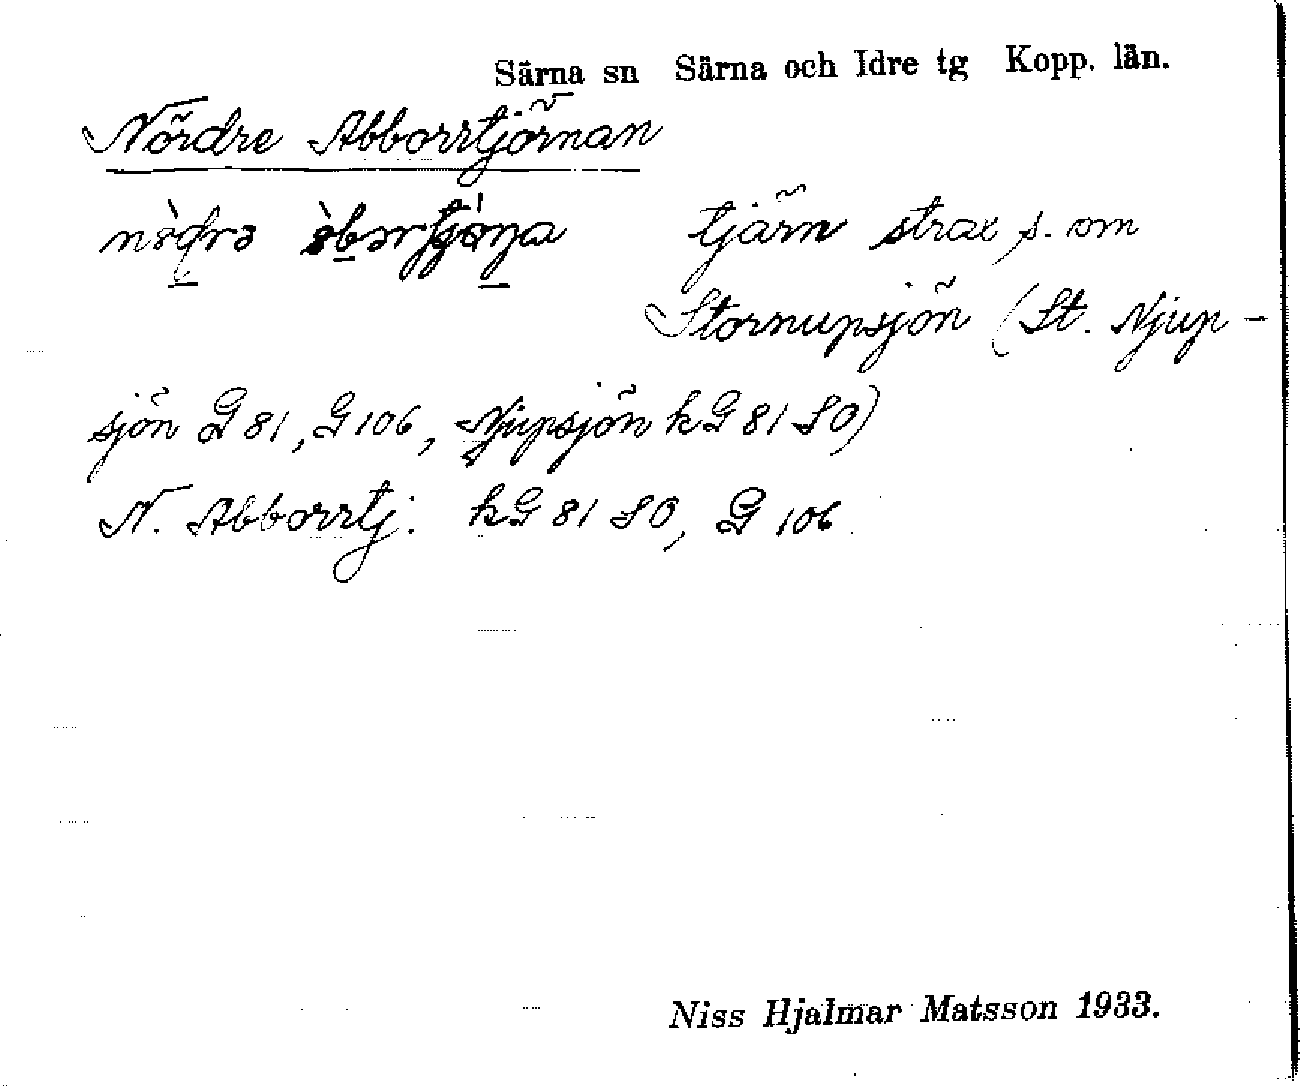 Särna sn Särna och Idre tg Kopp. län.
Nördre Abborrtjörnan
tjärn strax s. om
Stornupsjön (St. Njup-
sjön G 81, G 106, Njupsjön kG 81 SO)
N. Abborrtj. kG 81 SO, G 106
Niss Hjalmar Matsson 1933.